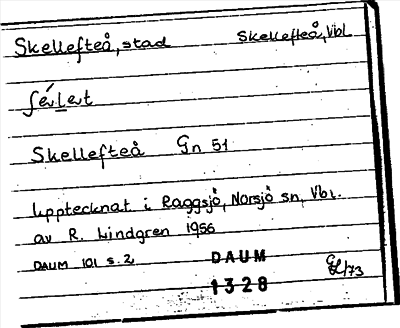 Skellefteå, stad Skellefteå, Vbl
Skellefteå Gn 51
Upptecknat i Raggsjö, Norsjö sn, Vbl.
av R. Lindgren 1956
DAUM 101 s. 2
DAUM
1328
/73